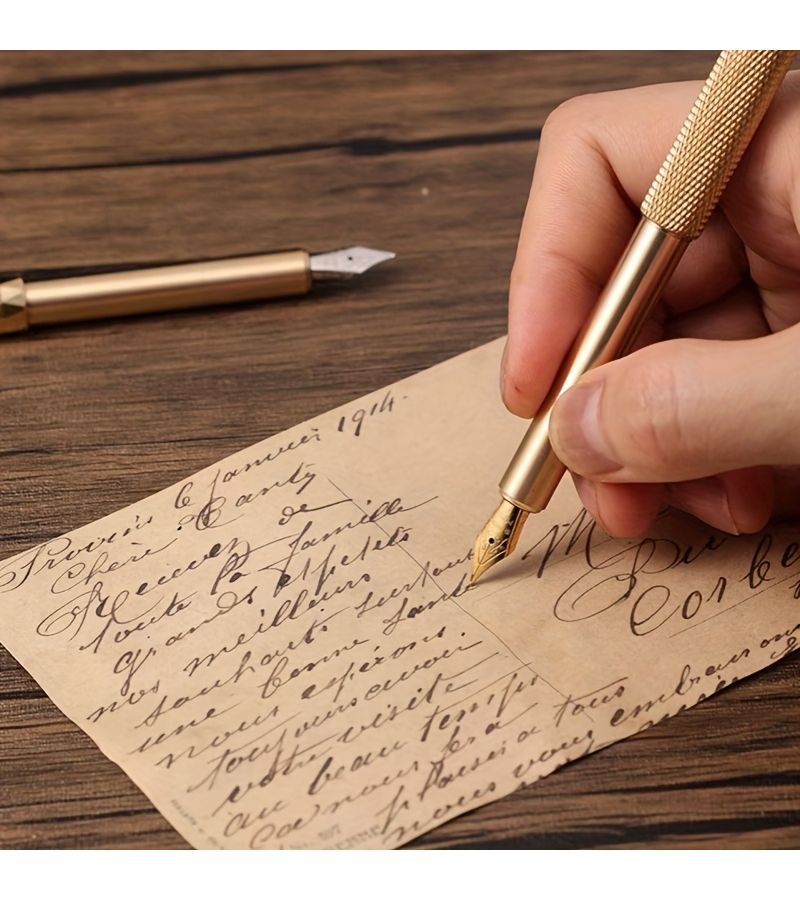 Provins 6 janvier 1914.
Chère Tanty
Recevez de
toute la famille
grands et petits
nos meilleurs
souhaits surtout
une bonne santé
nous espérons.
toujours avoir
votre visite
au beau temps
Ça nous fera
plaisir à tous
nous vous embrassons
M
Corbe